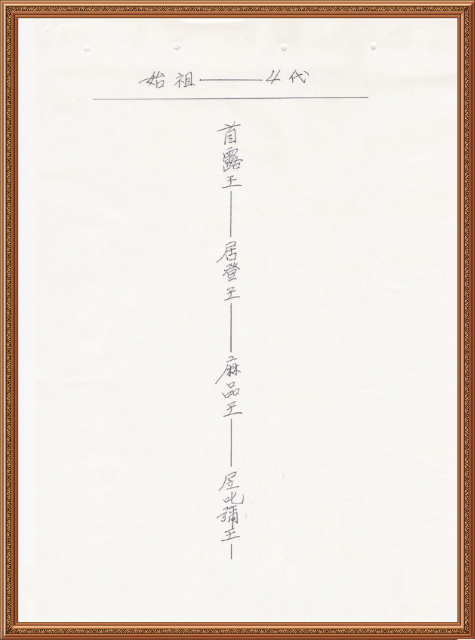 始祖——4代
首露王—居登王—麻品王—居叱彌王—